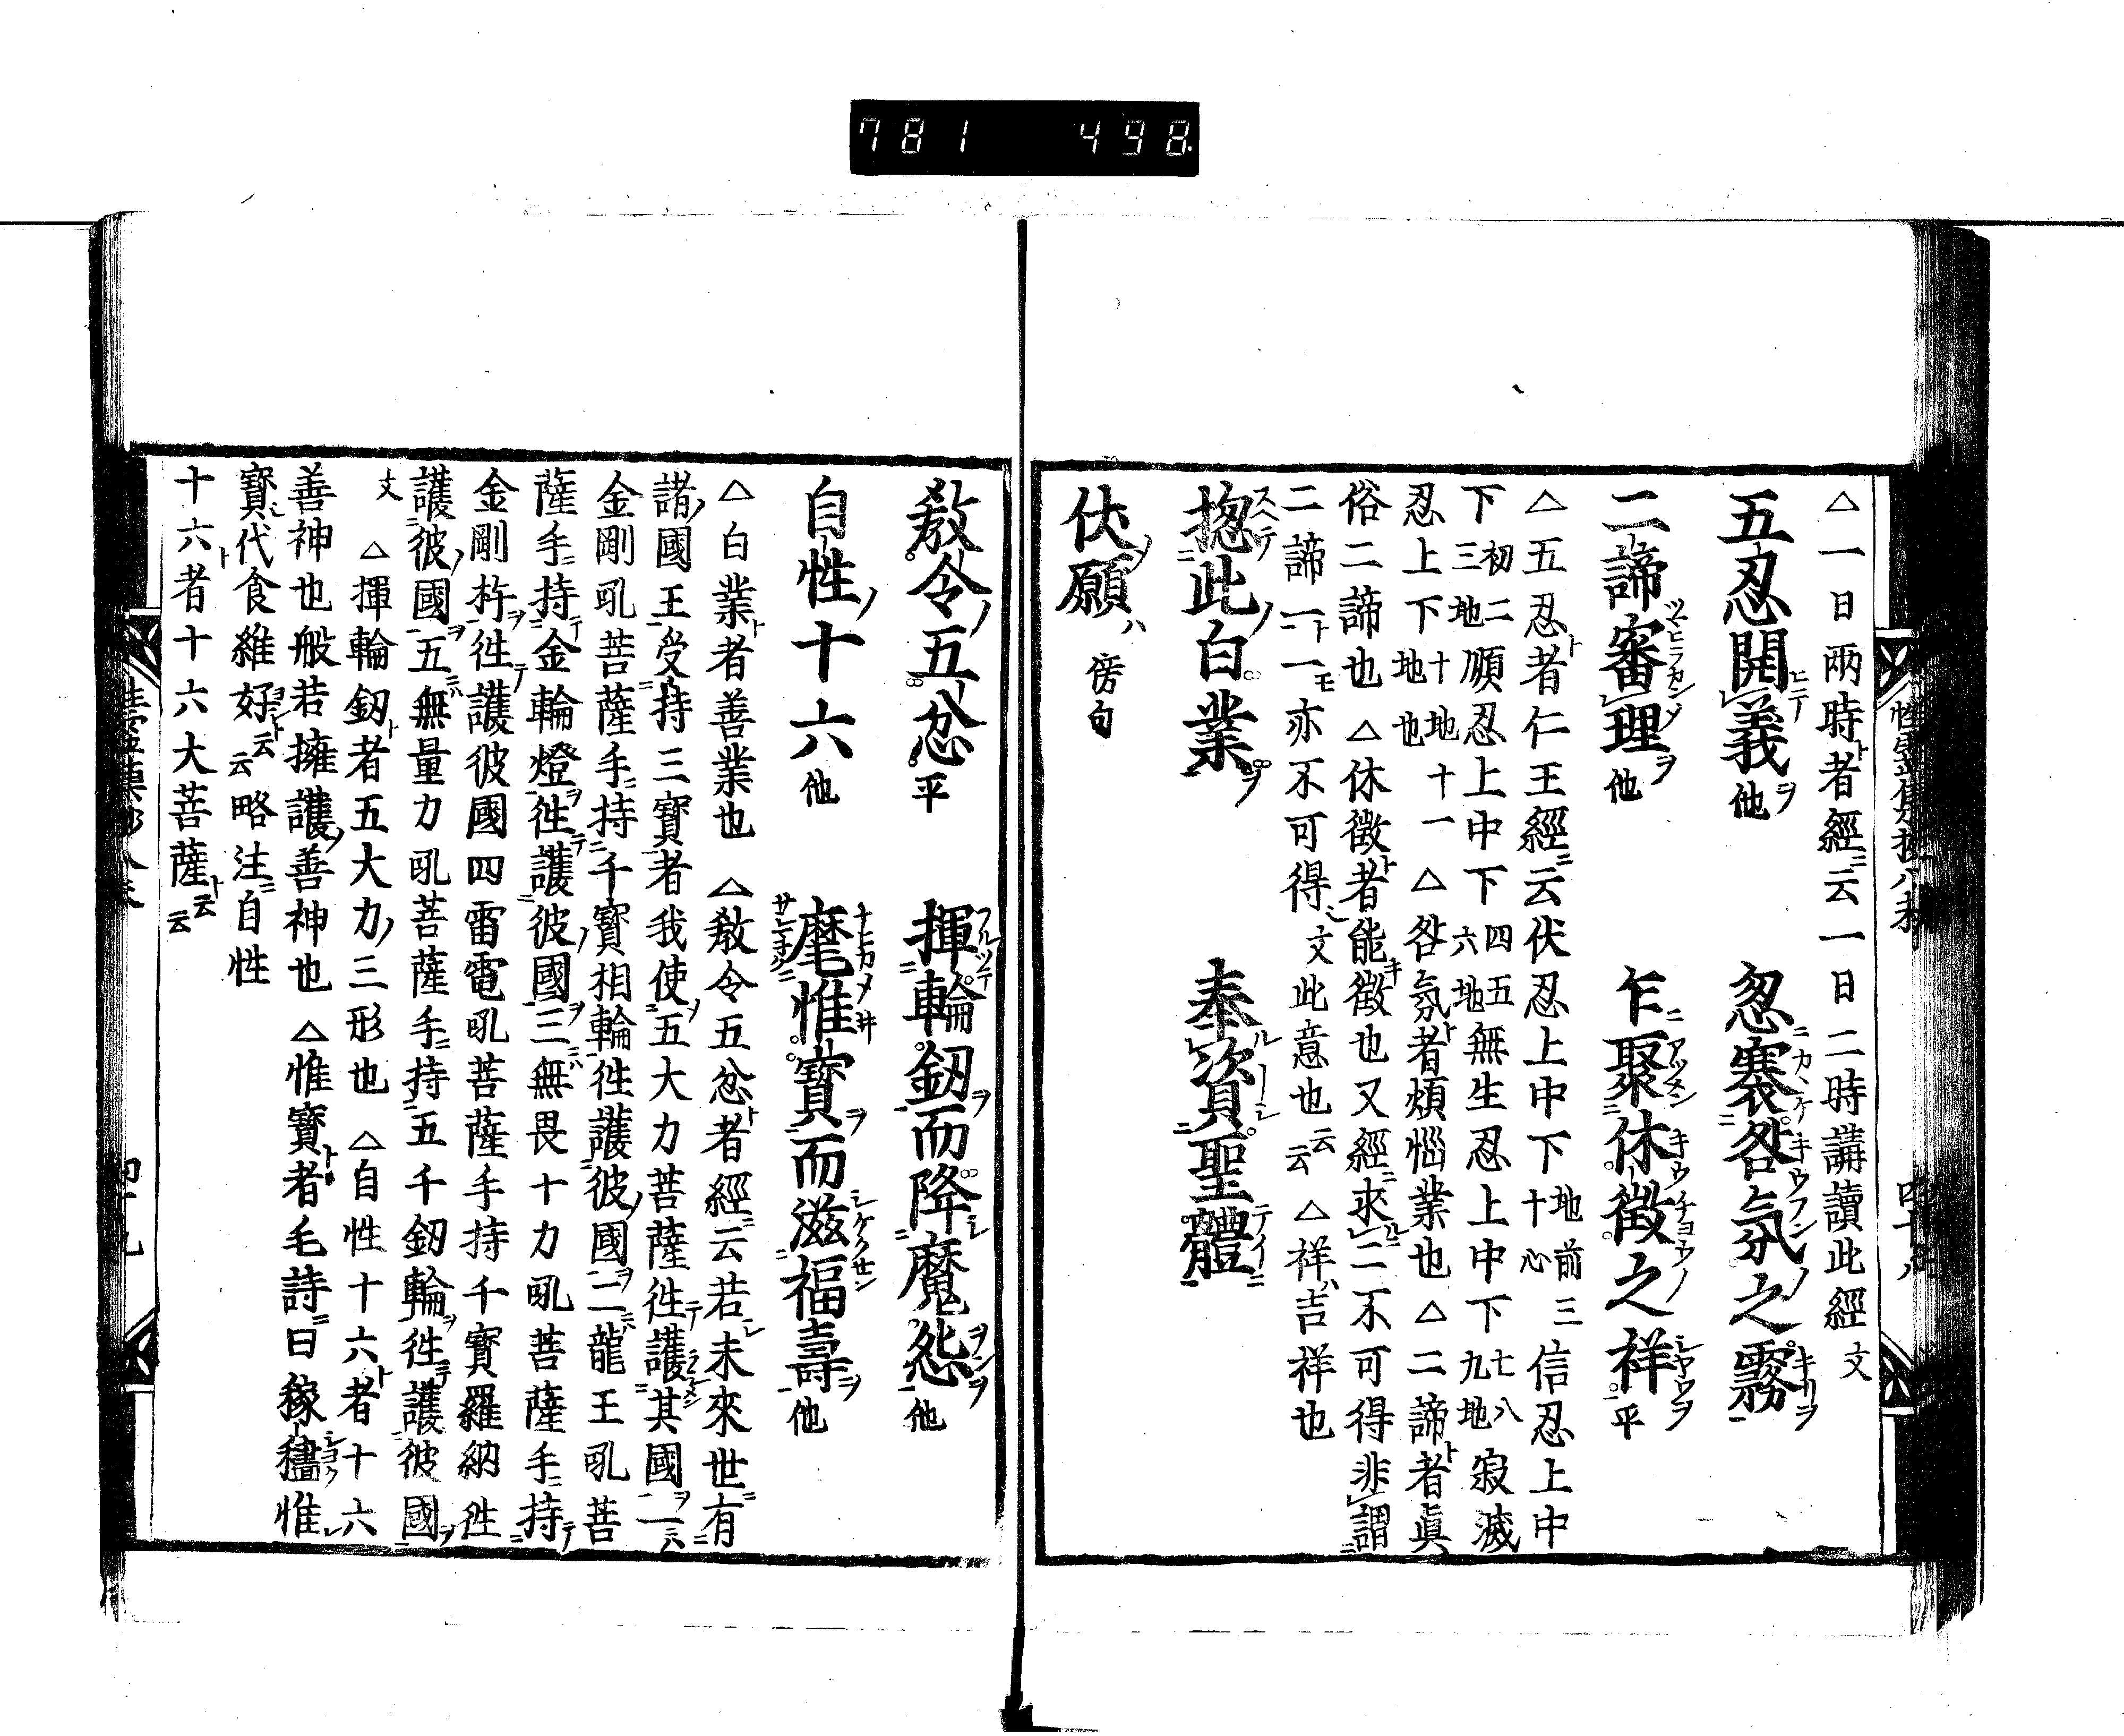 781 498
△一日兩時ト者經ニ云一日二時講讀此經文
五忍開義他 忽褰咎氛之霧
二諦審理他 乍聚休徵之祥平
△五忍者仁王經云伏忍上中下地前三十心信忍上中
下初二三地順忍上中下四五六地無生忍上中下七八九地寂滅
忍上下十地十一地也△咎氛者煩惱業也△二諦者眞
俗二諦也△休徵者能徵也又經求二不可得非謂
二諦一一亦不可得文此意也云云△祥吉祥也
揔此白業 奉資聖體
伏願ハ傍句
教令五忿平 揮輪釼而降魔怨他
自性十六他 麾惟寶而滋福壽他
△白業者善業也△教令五忿者經云若未來世有
諸國王受持三寶者我使五大力菩薩往護其國一
金剛吼菩薩手持千寶相輪往護彼國二龍王吼菩
薩手持金輪燈往護彼國三無畏十力吼菩薩手持
金剛杵往護彼國四雷電吼菩薩手持千寶羅納往
護彼國五無量力吼菩薩手持五千釼輪往護彼國
文△揮輪釼者五大力三形也△自性十六者十六
善神也般若擁護善神也△惟寶者毛詩曰稼穡惟
寶代食維好云云略注自性
十六者十六大菩薩云云